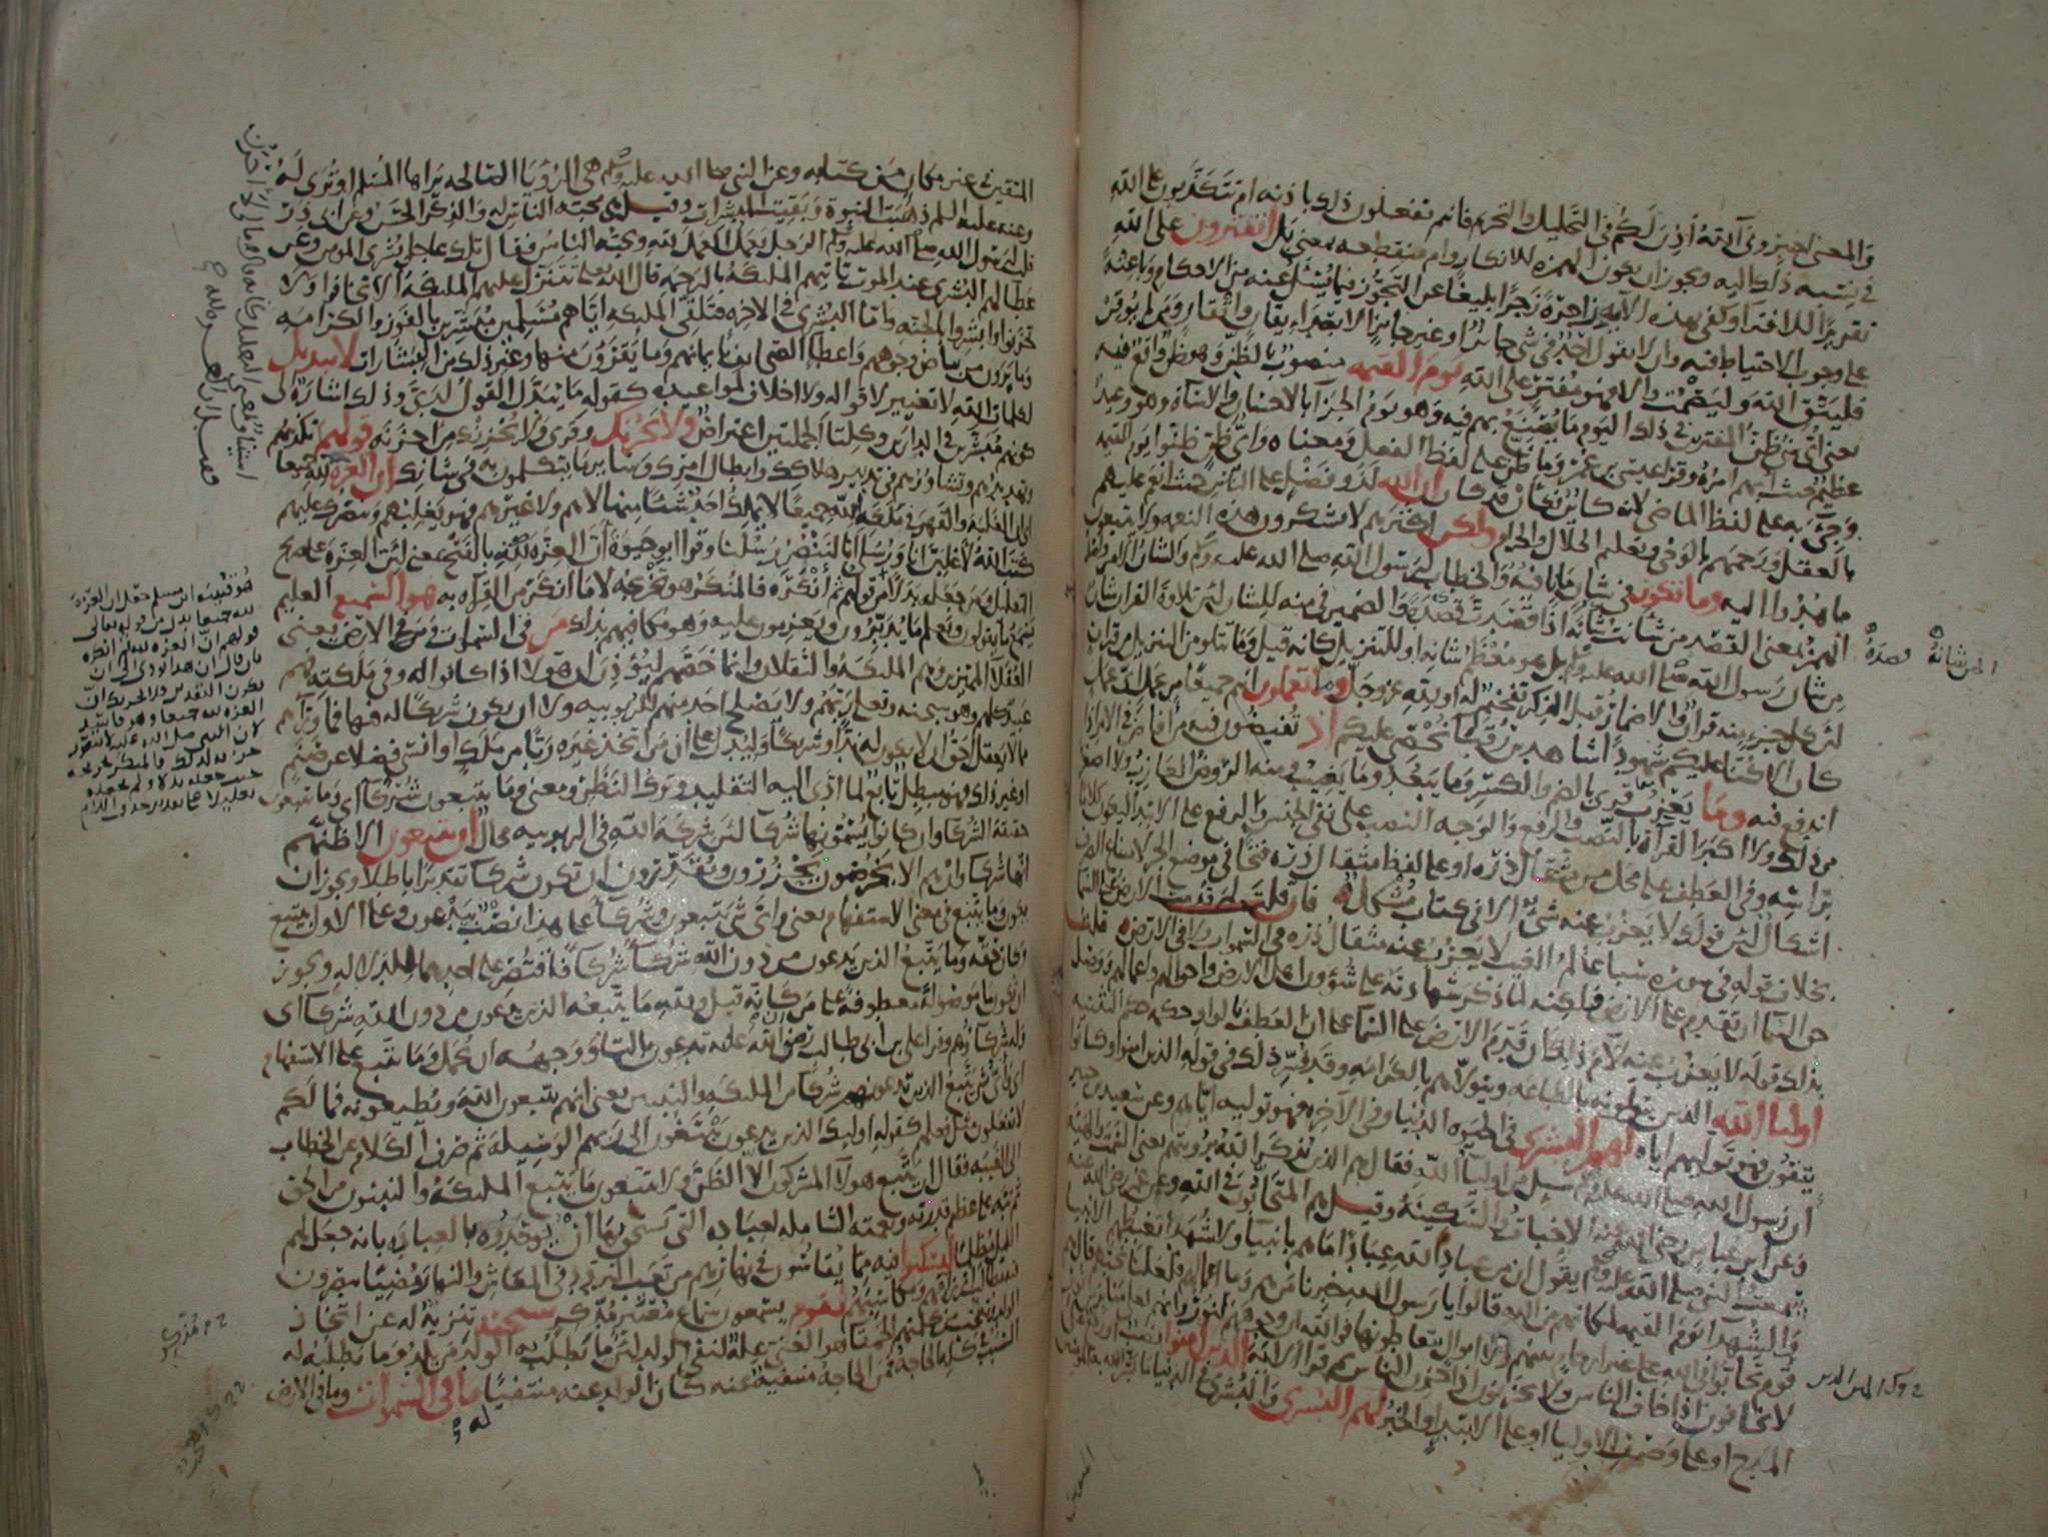 والمعنى اخبروني آلله أذن لكم في التحليل والتحريم فانتم تفعلون ذلك باذنه ام تتكذبون على الله
في نسبة ذلك اليه ويجوز ان يكون الهمزة للانكار وام منقطعة بمعنى بل اتفترون على الله
تقريرًا للافترا وكفى بهذه الآية زاجرة زجرًا بليغًا عن التجوز فيما يسئل عنه من الاحكام وباعثة
على وجوب الاحتياط فيه وان لا يقول احد في شي جائز او غير جائز الا بعد ايقان واتقان ومن لم يوقن
فليتق الله وليصمت والا فهو مفتر على الله يوم القيمة منصوب بالظن وهو ظن واقع فيه
يعني أي شي ظن المفترين في ذلك اليوم ما يصنع بهم فيه وهو يوم الجزا بالاحسان والاساة وهو وعيد
عظيم حيث ابهم امره وقرا عيسى بن عمر وما ظن على لفظ الفعل ومعناه واي ظن ظنوا يوم القيمة
وجي به على لفظ الماضي لانه كاين فكان قد كان ان الله لذو فضل على الناس حيث انعم عليهم
بالعقل ورحمهم بالوحي وتعليم الحلال والحرام ولكن اكثرهم لا يشكرون هذه النعمة ولا يتبعون
ما هدوا اليه وما تكون في شان ما نافية والخطاب لرسول الله صلى الله عليه وسلم والشان الامر واصله
الهمز بمعنى القصد من شانت شانه اذا قصدت قصده والضمير في منه للشان لان تلاوة القران شان
من شان رسول الله صلى الله عليه وسلم بل هو معظم شانه او للتنزيل كانه قيل وما تتلو من التنزيل من قران
لان كل جزء منه قران والاضمار قبل الذكر تفخيم له او لله عز وجل وما تعملون انتم جميعا من عمل اي عمل
كان الا كنا عليكم شهودا شاهدين رقبا نحصي عليكم اذ تفيضون فيه من افاض في الامر اذا
اندفع فيه وما يعزب قرئ بالضم والكسر وما يبعد وما يغيب ومنه الروض العازب ولا اصغر
من ذلك ولا اكبر القراة بالنصب والرفع والوجه النصب على نفي الجنس والرفع على الابتدا ليكون كلاما
براسه وفي العطف على محل من مثقال ذره او على لفظ مثقال ذره فتحا في موضع الجر لامتناع الصرف
اشكال لان قولك لا يعزب عنه شئ الا في كتاب مشكل فان قلت لم قدمت الارض على السما
بخلاف قوله في سورة سبا عالم الغيب لا يعزب عنه مثقال ذره في السموات ولا في الارض قلت
حق السما ان تقدم على الارض ولكنه لما ذكر شهادته على شؤون اهل الارض واحوالهم واعمالهم ووصل
بذلك قوله لا يعزب عنه لام ذلك ان قدم الارض على السما على ان العطف بالواو حكمه حكم التثنية
اوليا الله الذين يتولونه بالطاعة ويتولاهم بالكرامة وقد فسر ذلك في قوله الذين امنوا وكانوا
يتقون فهو توليهم اياه لهم البشرى في الحيوة الدنيا وفي الآخرة فهو توليه اياهم وعن سعيد بن جبير
ان رسول الله صلى الله عليه وسلم سئل من اوليا الله فقال هم الذين يذكر الله برؤيتهم يعني السمت والهيئة
وعن ابن عباس رضي الله عنه الاخبات والسكينة وقيل هم المتحابون في الله وعن عمر رضي الله عنه
سمعت النبي صلى الله عليه وسلم يقول ان من عباد الله عبادا ما هم بانبيا ولا شهدا يغبطهم الانبيا
والشهدا يوم القيمة لمكانهم من الله قالوا يا رسول الله خبرنا من هم وما اعمالهم فلعلنا نحبهم قال هم
قوم تحابوا في الله على غير ارحام بينهم ولا اموال يتعاطونها فوالله ان وجوههم لنور وانهم لعلى منابر من نور
لا يخافون اذا خاف الناس ولا يحزنون اذا حزن الناس ثم قرا الاية الذين امنوا نصب او رفع على
المدح او على وصف الاوليا او على الابتدا والخبر لهم البشرى والبشرى في الدنيا ما بشر الله به المومنين
المتقين في غير مكان من كتابه وعن النبي صلى الله عليه وسلم هي الرؤيا الصالحة يراها المسلم او ترى له
وعنه عليه السلم ذهبت النبوة وبقيت المبشرات وقيل هي محبة الناس له والذكر الحسن وعن ابي ذر
قلت لرسول الله صلى الله عليه وسلم الرجل يعمل العمل لله ويحبه الناس فقال تلك عاجل بشرى المومن وعن
عطا لهم البشرى عند الموت تاتيهم الملئكة بالرحمة قال الله تعالى تتنزل عليهم الملئكة الا تخافوا ولا
تحزنوا وابشروا بالجنة واما البشرى في الاخرة فتلقى الملئكة اياهم مسلمين مبشرين بالفوز والكرامة
وما يرون من بياض وجوههم واعطا الصحائف بايمانهم وما يقرؤن منها وغير ذلك من البشارات لا تبديل
لكلمات الله لا تغيير لاقواله ولا اخلاف لمواعيده كقوله ما يبدل القول لدي وذلك اشارة الى
كونهم مبشرين في الدارين وكلتا الجملتين اعتراض ولا يحزنك وقرئ ولا يحزنك من احزنه قولهم تكذيبهم
وتهديدهم وتشاورهم في تدبير هلاكك وابطال امرك وساير ما يتكلمون به في شانك ان العزة لله جميعا
اي ان الغلبة والقهر في ملكة الله جميعا لا يملك احد شيئا منها لا هم ولا غيرهم فهو يغلبهم وينصرك عليهم
كتب الله لاغلبن انا ورسلي انا لننصر رسلنا وقرا ابو حيوة ان العزة لله بالفتح بمعنى لان العزة على صريح
التعليل ومن جعله بدلا من قولهم ثم انكره فالمنكر هو تخريجه لا ما انكر من القراة به هو السميع العليم
يسمع ما يقولون ويعلم ما يدبرون ويعزمون عليه وهو مكافيهم بذلك من في السموات ومن في الارض يعني
العقلا المميزين وهم الملئكة والثقلان وانما خصهم ليؤذن ان هولا اذا كانوا له وفي ملكته فهم
عبيد كلهم وهو سبحنه وتعالى ربهم ولا يصلح احد منهم للربوبيه ولا ان يكون شريكا له فيها فما وراهم
مما لا يعقل احق ان لا يكون له ندا وشريكا وليدل على ان من اتخذ غيره ربا من ملك او انسي فضلا عن صنم
او غير ذلك فهو مبطل تابع لما ادى اليه التقليد وترك النظر ومعنى وما يتبعون شركا اي وما يتبعون
حقيقة الشركا وان كانوا يسمونها شركا لان شركة الله في الربوبيه محال ان يتبعون الا ظنهم
انها شركا وان هم الا يخرصون يحزرون ويقدرون ان تكون شركا تقديرا باطلا ويجوز ان
يكون وما يتبع في معنى الاستفهام يعني واي شي يتبعون وشركا على هذا نصب بيدعون وعلى الاول بيتبع
وكان حقه وما يتبع الذين يدعون من دون الله شركا شركا فاقتصر على احدهما للدلالة ويجوز
ان يكون ما موصولة معطوفة على من كانه قيل ولله ما يتبعه الذين يدعون من دون الله شركا اي
وله شركاؤهم وقرا علي بن ابي طالب رضي الله عنه تدعون بالتا ووجهه ان يحمل وما يتبع على الاستفهام
اي واي شي يتبع الذين تدعونهم شركا من الملئكة والنبيين يعني انهم يتبعون الله ويطيعونه فما لكم
لا تفعلون مثل فعلهم كقوله اوليك الذين يدعون يبتغون الى ربهم الوسيلة ثم صرف الكلام عن الخطاب
الى الغيبه فقال ان يتبع هولا المشركون الا الظن ولا يتبعون ما يتبع الملئكة والنبيون من الحق
ثم نبه على عظم قدرته ونعمته الشاملة لعباده التي يستحق بها ان يوحدوه بالعبادة بانه جعل لهم
الليل مظلما لتسكنوا فيه مما يقاسون في نهارهم من تعب التردد في المعاش والنهار مضيئا يبصرون
فيه مطالب ارزاقهم ومكاسبهم لقوم يسمعون سماع معتبر مدكر سبحنه تنزيه له عن اتخاذ
الولد وتعجب من كلمتهم الحمقا هو الغني علة لنفي الولد لان ما يطلب به الولد من يلد وما يطلبه له
السبب كله الحاجة فمن الحاجة منتفية عنه كان الولد عنه منتفيا ما في السموات وما في الارض